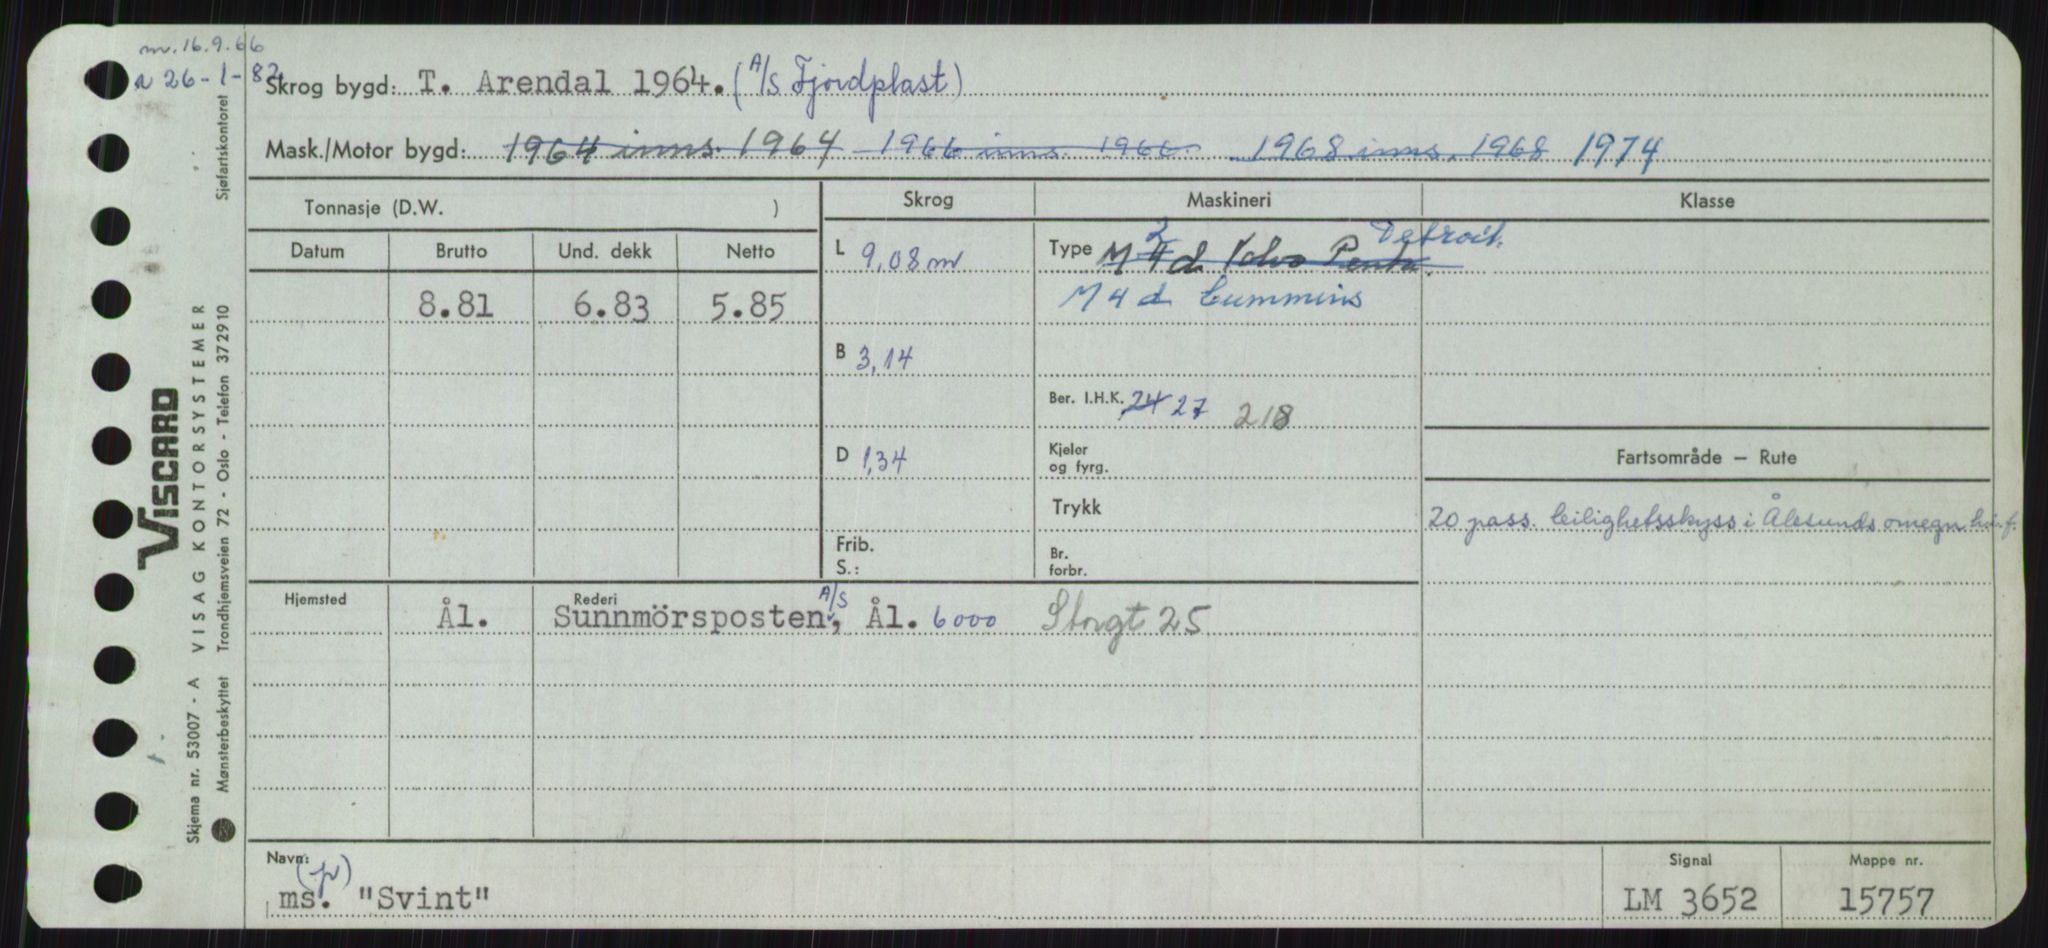 m. 16.9.66
26-1-82
Skrog bygd: T. Arendal 1964. (A/S Fjordplast)
Mask./Motor bygd: 1964 inns. 1964 1966 inns. 1966 1968 inns. 1968 1974
Tonnasje (D.W. ) Skrog Maskineri Klasse
Datum Brutto Und. dekk Netto
L 9,08 m Type M 4 d Volvo Penta 2 Detroit.
8.81 6.83 5.85 M 4 d Cummins
B 3,14
Ber. I.H.K. 24 27 218
D 1,34 Kjeler og fyrg. Fartsområde — Rute
Trykk 20 pass. leilighetsskyss i Ålesunds omegn
Frib.
S.: Br. forbr.
Hjemsted Ål. Rederi Sunnmörsposten, A/S, Ål. 6000 Storgt 25
Navn: (p)
ms. "Svint"
Signal LM 3652
Mappe nr. 15757
VISCARD
Skjema nr. 53007 - A VISAG KONTORSYSTEMER Sjøfartskontoret
Mønsterbeskyttet Trondhjemsveien 72 - Oslo - Telefon 372910